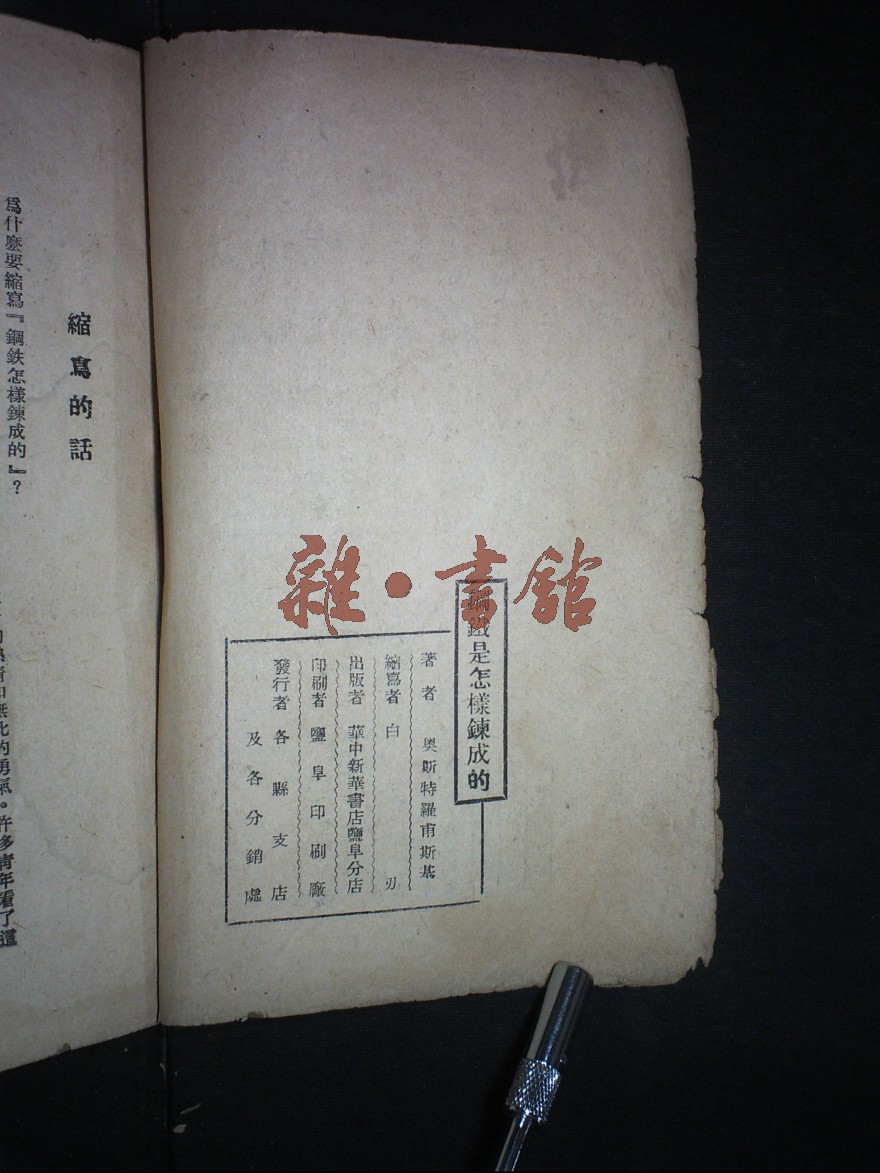 雜·書館
鋼鐵是怎樣鍊成的
著者 奧斯特羅甫斯基
縮寫者 白刃
出版者 華中新華書店鹽阜分店
印刷者 鹽阜印刷廠
發行者 各縣支店
及各分銷處
縮寫的話
爲什麽要縮寫『鋼鉄怎樣鍊成的』?
的勇氣。許多靑年看了這